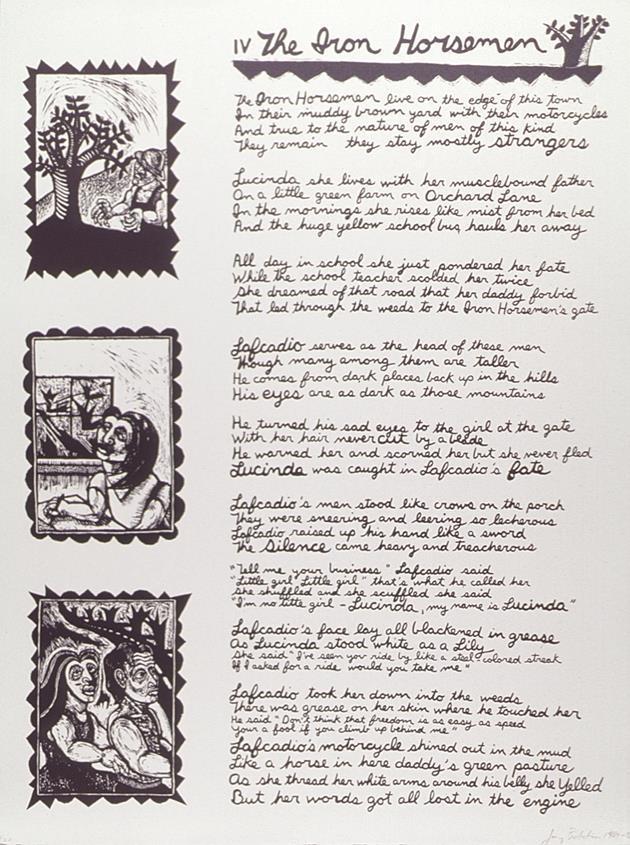 IV The Iron Horsemen
The Iron Horsemen live on the edge of this town
In their muddy brown yard with their motorcycles
And true to the nature of men of this kind
They remain they stay mostly strangers
Lucinda she lives with her musclebound father
On a little green farm on Orchard Lane
In the mornings she rises like mist from her bed
And the huge yellow school bus hauls her away
All day in school she just pondered her fate
While the school teacher scolded her twice
She dreamed of that road that her daddy forbid
That led through the weeds to the Iron Horsemen's gate
Lafcadio serves as the head of these men
Though many among them are taller
He comes from dark places back up in the hills
His eyes are as dark as those mountains
He turned his sad eyes to the girl at the gate
With her hair never cut by a blade
He warned her and scorned her but she never fled
Lucinda was caught in Lafcadio's fate
Lafcadio's men stood like crows on the porch
They were sneering and leering so lecherous
Lafcadio raised up his hand like a sword
The Silence came heavy and treacherous
"Tell me your business" Lafcadio said
"Little girl, Little girl" that's what he called her
She shuffled and she scuffled she said
"I'm no little girl - Lucinda, my name is Lucinda"
Lafcadio's face lay all blackened in grease
As Lucinda stood white as a Lily
She said "I've seen you ride by like a steel colored streak
If I asked for a ride would you take me"
Lafcadio took her down into the weeds
There was grease on her skin where he touched her
He said "Don't think that freedom is as easy as speed
Your a fool if you climb up behind me."
Lafcadio's motorcycle shined out in the mud
Like a horse in here daddy's green pasture
As she thread her white arms around his belly she yelled
But her words got all lost in the engine